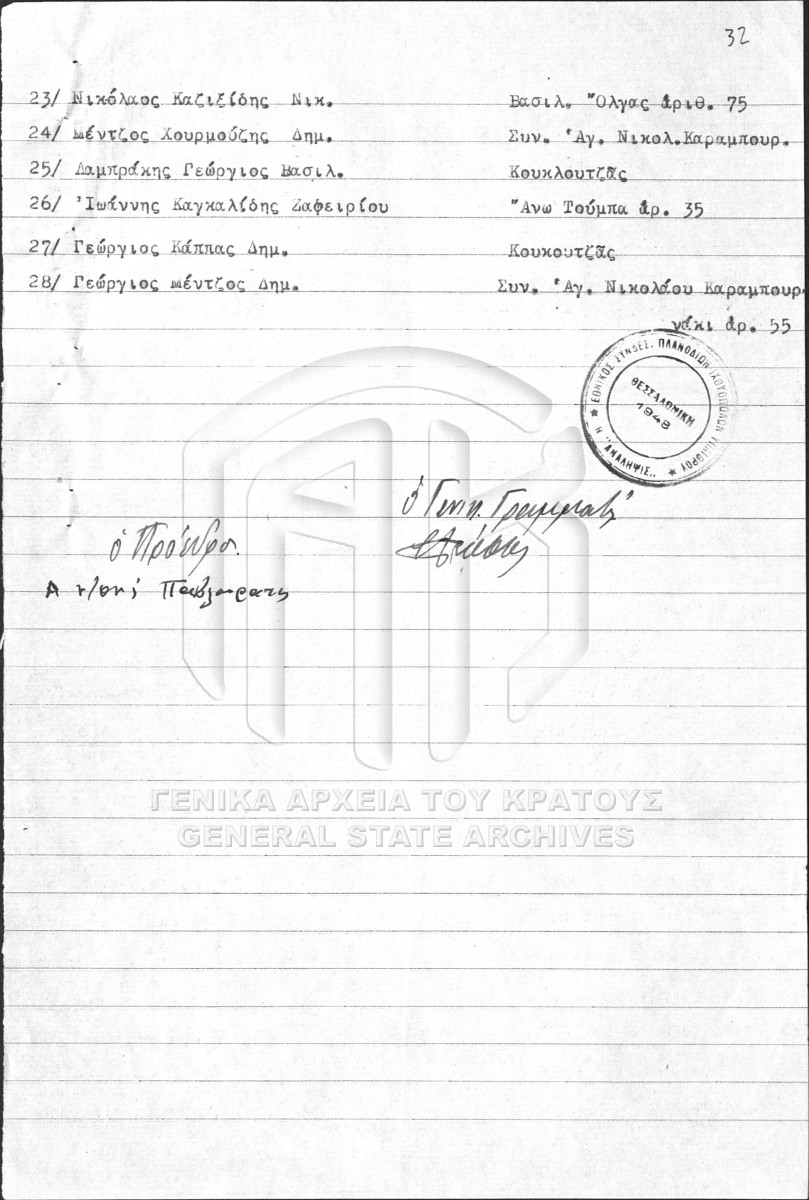 32
23/ Νικόλαος Καζιξίδης Νικ. Βασιλ. Ὄλγας ἀριθ. 75
24/ Μέντζος Χουρμούζης Δημ. Συν. Ἁγ. Νικολ.Καραμπουρ.
25/ Λαμπράκης Γεώργιος Βασιλ. Κουκλουτζᾶς
26/ Ἰωάννης Καγκαλίδης Ζαφειρίου Ἄνω Τούμπα ἀρ. 35
27/ Γεώργιος Κάππας Δημ. Κουκουτζᾶς
28/ Γεώργιος Μέντζος Δημ. Συν. Ἁγ. Νικολάου Καραμπουρ-
νάκι ἀρ. 55
ΕΘΝΙΚΟΣ ΣΥΝΔΕΣ. ΠΛΑΝΟΔΙΩΝ
Η "ΑΝΑΛΗΨΙΣ"
ΘΕΣΣΑΛΟΝΙΚΗ
1948
ὁ Γενικ. Γραμματ
ὁ Πρόεδρο.
ΓΕΝΙΚΑ ΑΡΧΕΙΑ ΤΟΥ ΚΡΑΤΟΥΣ
GENERAL STATE ARCHIVES